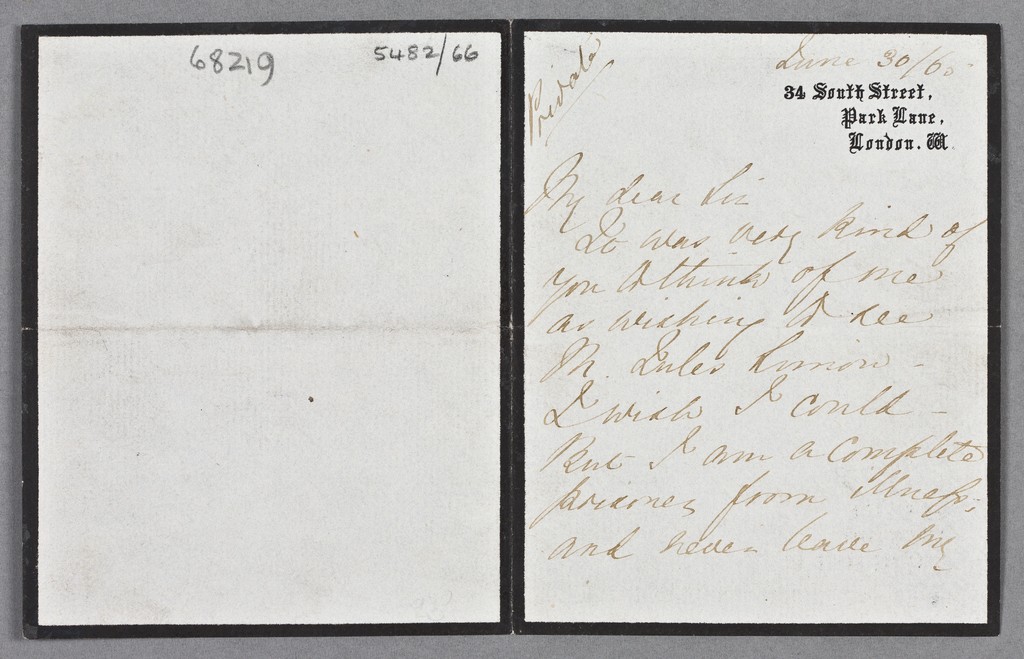 68219
5482/66
Private
June 30/65
34 South Street,
Park Lane,
London. W.
My dear Sir
It was very kind of
you to think of me
as wishing to see
M. Jules Simon -
I wish I could -
But I am a complete
prisoner from illness,
and never leave my